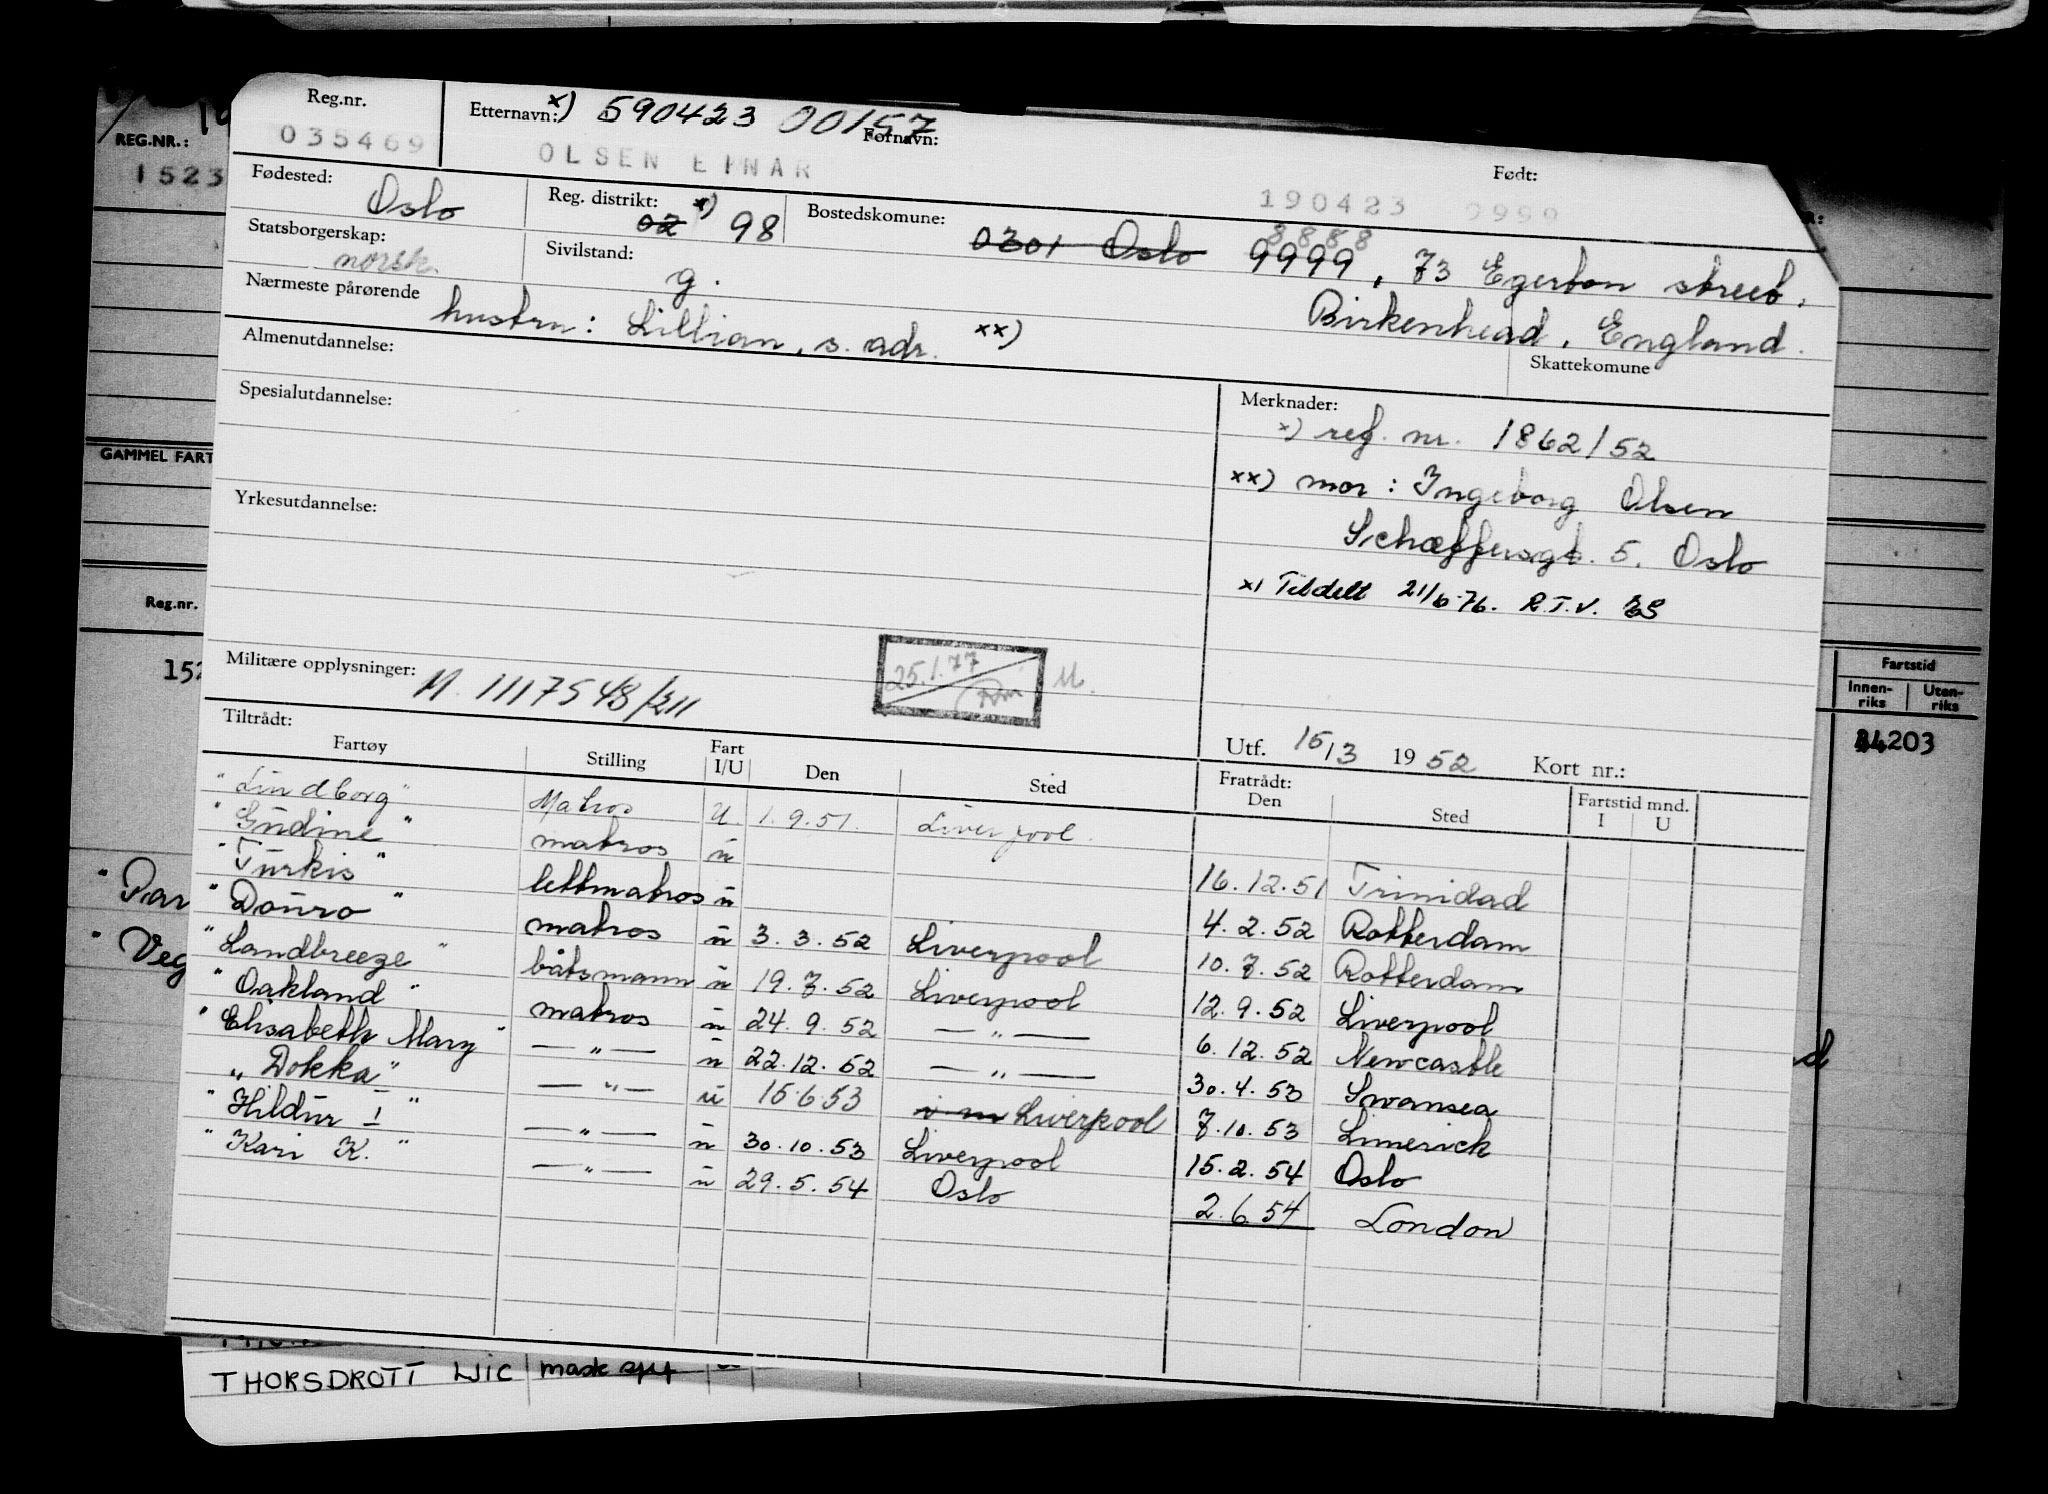 REG.NR.:
1523
GAMMEL FART
Reg.nr.
Reg.nr.
035469
Etternavn: x) 590423 00157
Fornavn:
OLSEN EINAR
Født:
190423 9999
Fødested:
Oslo
Reg. distrikt: x)
02 98
Bostedskomune:
0301 Oslo 9999, 73 Egerton street,
8888
Birkenhead, England.
Statsborgerskap:
norsk.
Sivilstand:
g.
Nærmeste pårørende
hustru: Lillian, s. adr. xx)
Skattekomune
Almenutdannelse:
Spesialutdannelse:
Yrkesutdannelse:
Merknader:
x) reg. nr. 1862/52
xx) mor: Ingeborg Olsen
Schæffersgt. 5. Oslo
x) Tildelt 21/6-76. R.T.V.
Militære opplysninger:
M. 1117548/211
25.1.77
M.
Utf. 15/3 1952 Kort nr.:
Tiltrådt:
Fartøy Stilling Fart I/U Den Sted
Fratrådt:
Den Sted Fartstid mnd. I U
"Lindborg" Matros U. 1.9.51. Liverpool.
"Gudine" matros u 16.12.51 Trinidad
"Turkis" lettmatros u 4.2.52 Rotterdam
"Douro" matros u 3.3.52 Liverpool 10.7.52 Rotterdam
"Landbreeze" båtsmann u 19.7.52 Liverpool 12.9.52 Liverpool
"Oakland" matros u 24.9.52 — " — 6.12.52 Newcastle
"Elisabeth Mary" — " — u 22.12.52 — " — 30.4.53 Swansea
"Dokka" — " — u 15.6.53 Liverpool 7.10.53 Limerick
"Hildur I" — " — u 30.10.53 Liverpool 15.2.54 Oslo
"Kari K." — " — u 29.5.54 Oslo 2.6.54 London
152
"Par
"Veg
Fartstid
Innen-riks Uten-riks
203
THORSDROTT WIC mask